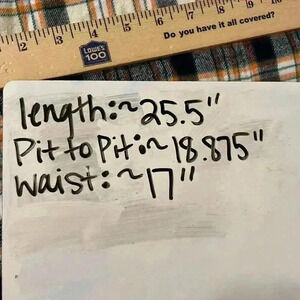 1 2 3 4 5 6 7 8 9
LOWE'S
100
Do you have it all covered?
length:~25.5"
Pit to Pit:~18.875"
Waist:~17"